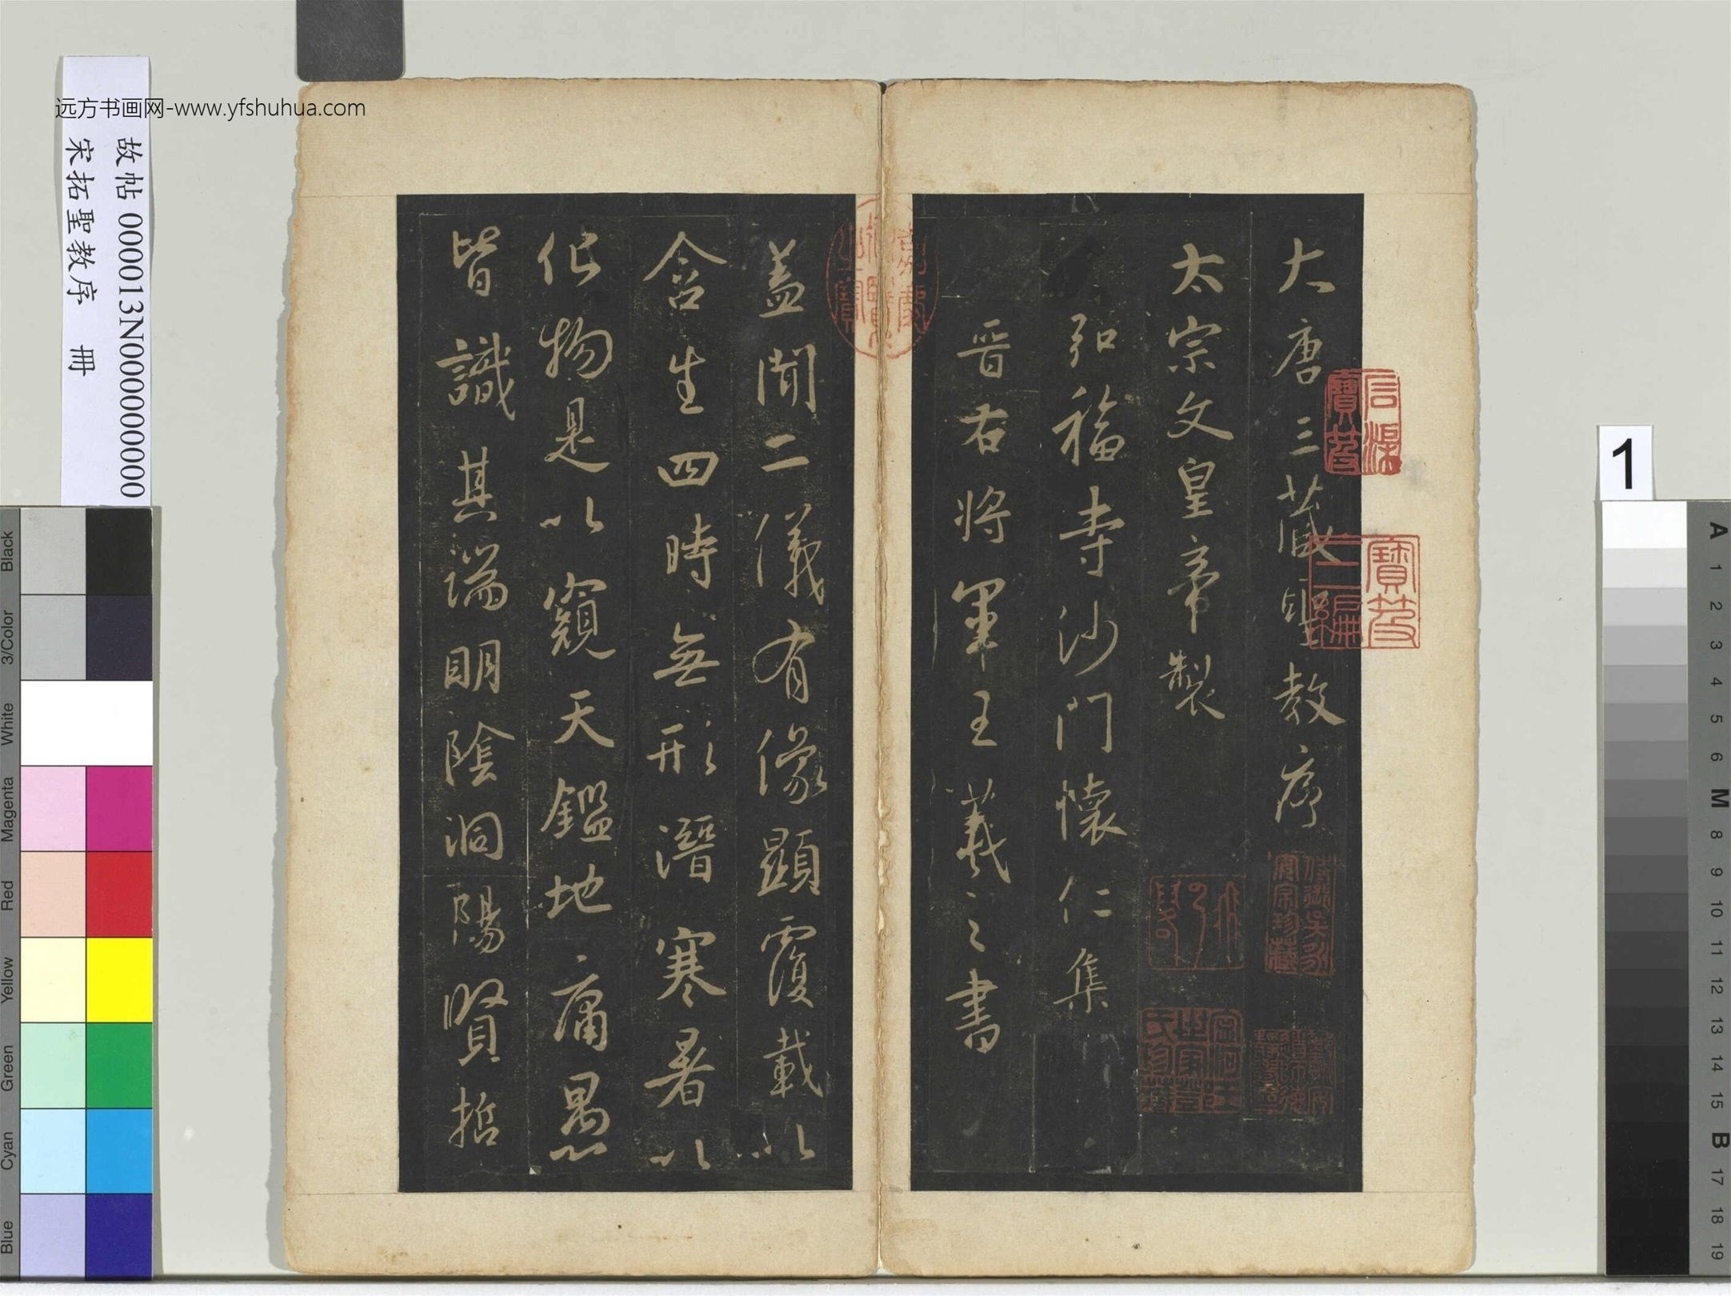 大唐三藏聖教序
太宗文皇帝製
弘福寺沙門懷仁集
晉右將軍王羲之書
蓋聞二儀有像顯覆載以
含生四時無形潛寒暑以
化物是以窺天鑑地庸愚
皆識其端明陰洞陽賢哲
远方书画网-www.yfshuhua.com
故帖 000013N000000000
宋拓聖教序 冊
嘉慶御覽之寶
石渠寶笈
寶笈三編
1
Black
3/Color
White
Magenta
Red
Yellow
Green
Cyan
Blue
A
1
2
3
4
5
6
M
8
9
10
11
12
13
14
15
B
17
18
19